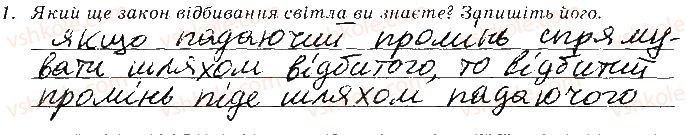 1. Який ще закон відбивання світла ви знаєте? Запишіть його.
якщо падаючий промінь спряму-
вати шляхом відбитого, то відбитий
промінь піде шляхом падаючого